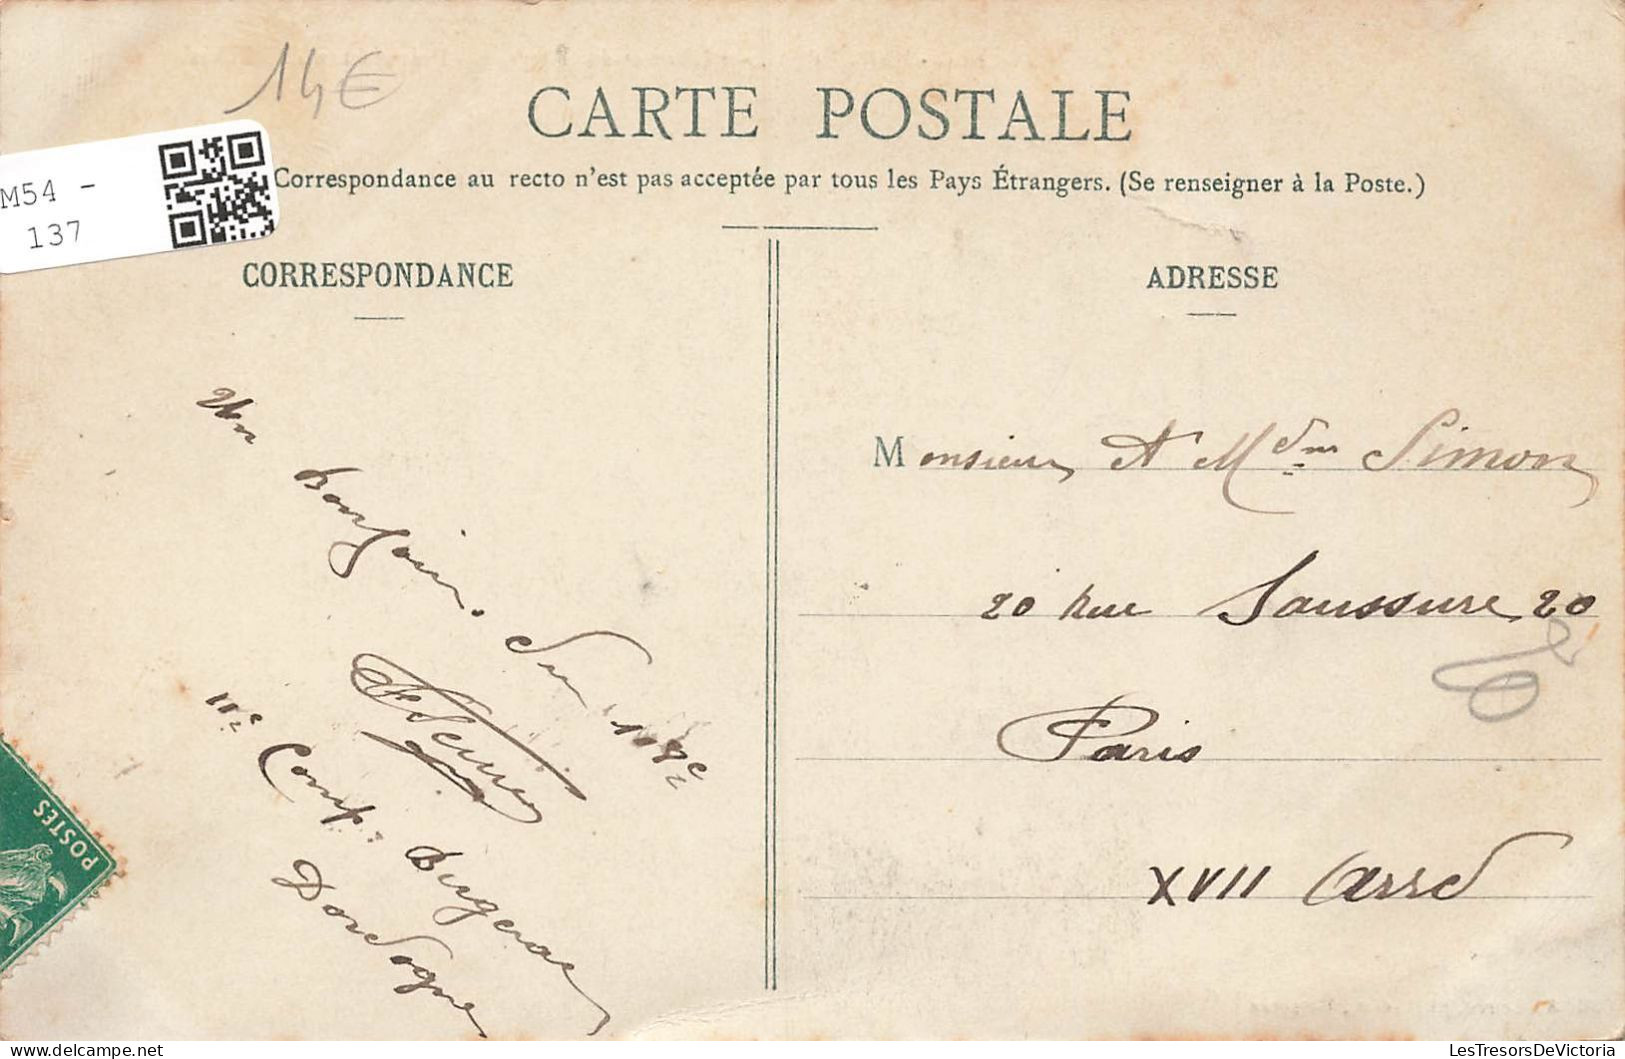 14€
CARTE POSTALE
M54 -
137
Correspondance au recto n'est pas acceptée par tous les Pays Étrangers. (Se renseigner à la Poste.)
CORRESPONDANCE
Un bonjour. du 108e
11e Comp: Bergerac
Dordogne
POSTES
ADRESSE
Monsieur et Mdme Simon
20 Rue Saussure 20
Paris
XVII Arrd
LesTresorsDeVictoria